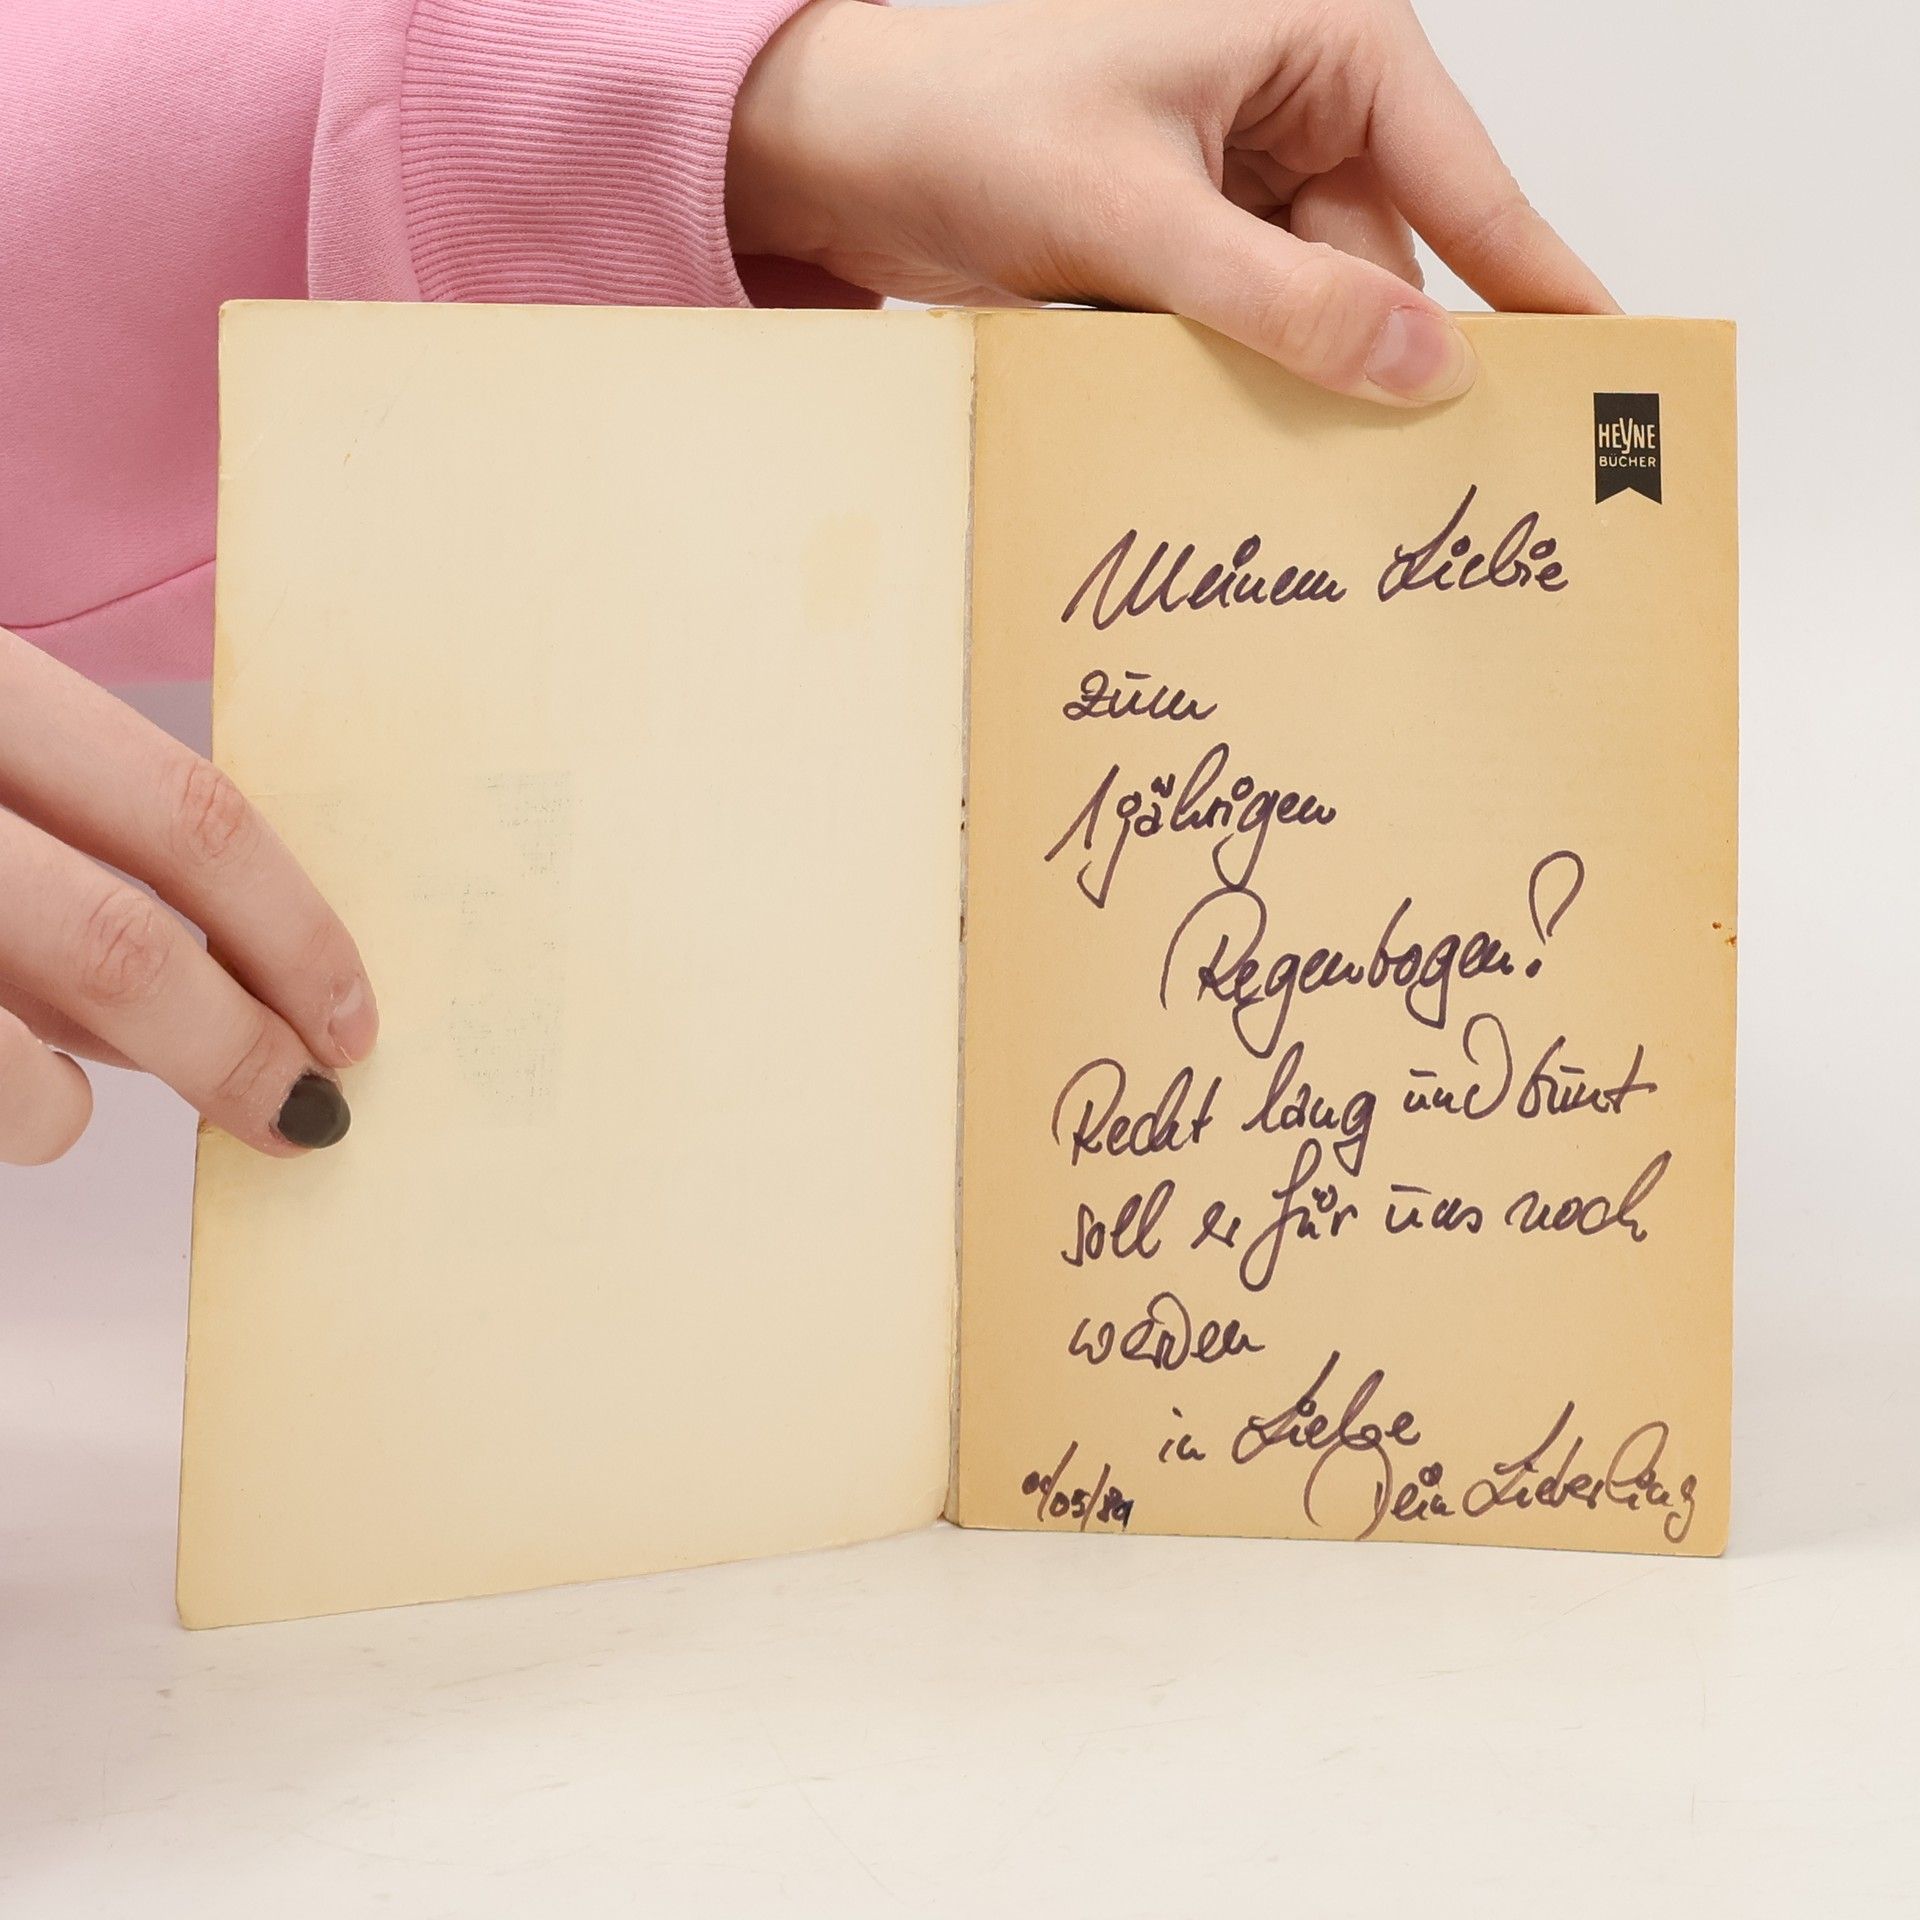 HEYNE
BÜCHER
Meinem Liebie
zum
1jährigen
Regenbogen!
Recht lang und bunt
soll er für uns noch
werden
in Liebe
Dein Lieberling